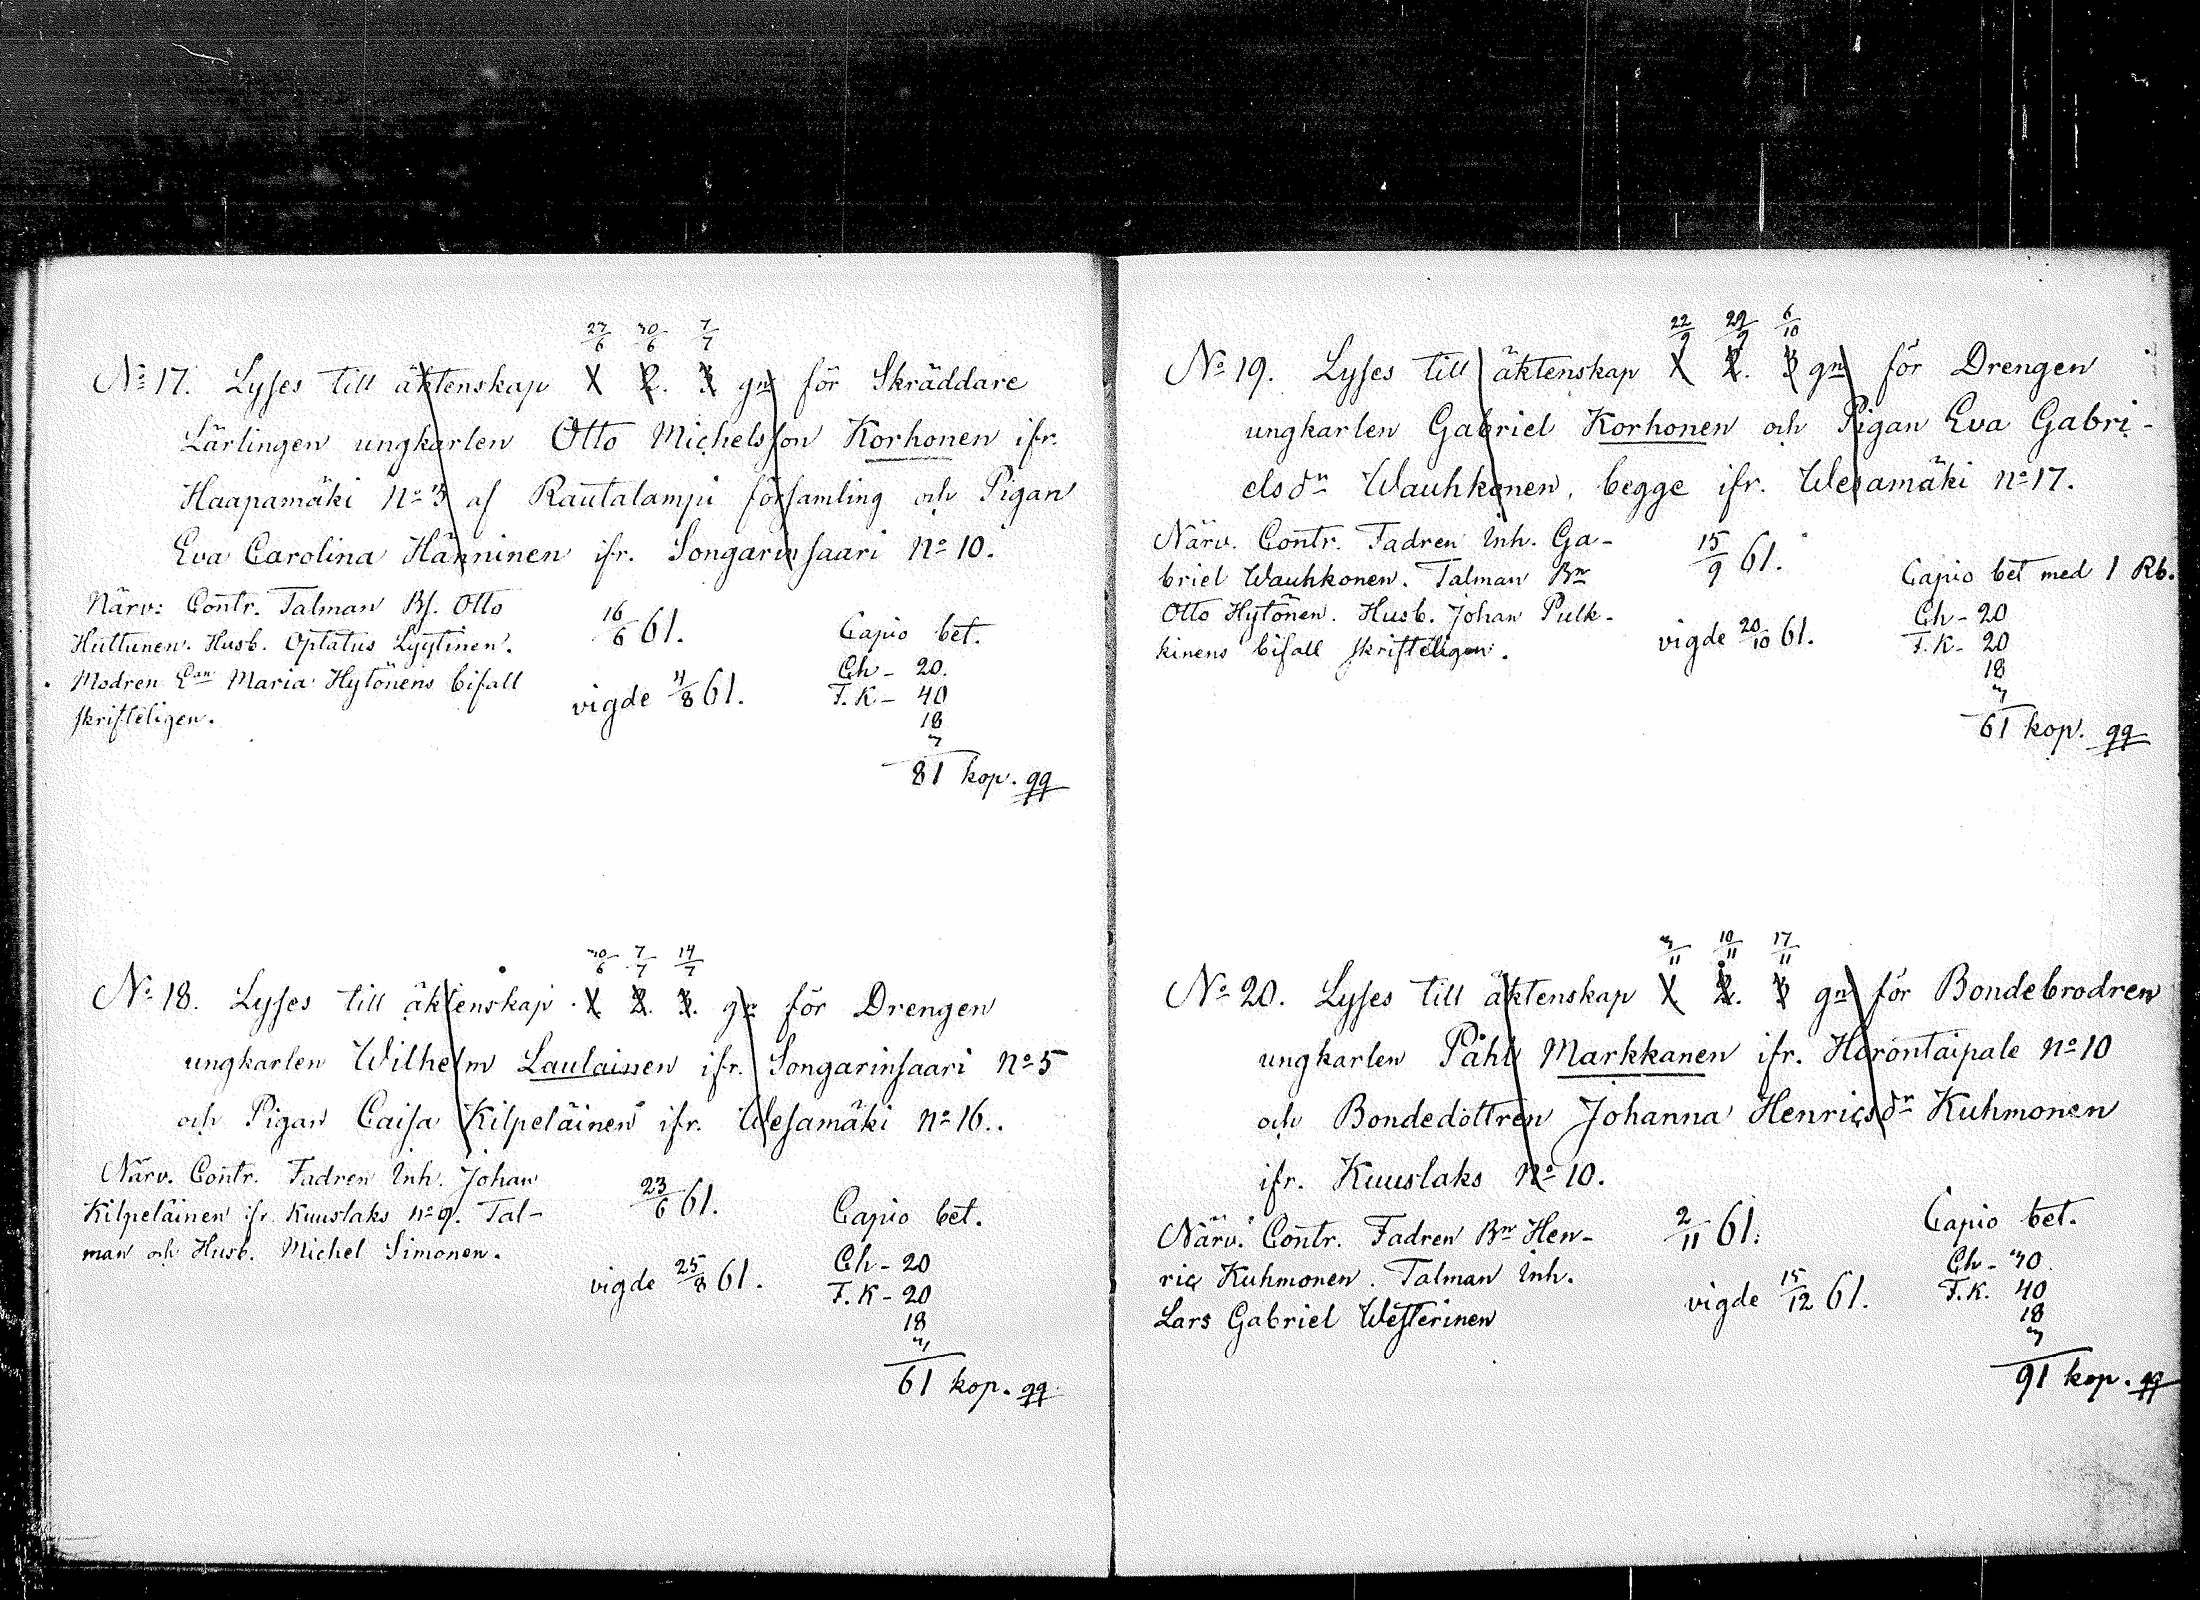 23/6 30/6 7/7
No 17. Lyses till äktenskap 1. 2. 3. gn för Skräddare
Lärlingen ungkarlen Otto Michelsson Korhonen ifr.
Haapamäki No 3 af Rautalampi församling och Pigan
Eva Carolina Hänninen ifr. Songarinsaari No 10.
Närv: Contr. Talman Bs. Otto
Huttunen. Husb. Optatus Lyytinen.
Modren Ean Maria Hytönens bifall
skrifteligen.
16/6 61.
vigde 4/8 61.
Capio bet.
Ch - 20.
F.K - 40
18
3
81 kop. qq
30/6 7/7 14/7
No 18. Lyses till äktenskap 1. 2. 3. gn för Drengen
ungkarlen Wilhelm Laulainen ifr. Songarinsaari No 5
och Pigan Caisa Kilpeläinen ifr. Wesamäki No 16.
Närv. Contr. Fadren Inh. Johan
Kilpeläinen ifr Kuuslaks No 9. Tal-
man och Husb. Michel Simonen.
23/6 61.
vigde 25/8 61.
Capio bet.
Ch - 20
F.K - 20
18
3
61 kop. qq
22/9 29/9 6/10
No 19. Lyses till äktenskap 1. 2. 3 gn för Drengen
ungkarlen Gabriel Korhonen och Pigan Eva Gabri-
elsdr Wauhkonen, begge ifr. Wesamäki No 17.
Närv. Contr. Fadren Inh. Ga-
briel Wauhkonen. Talman Bn
Otto Hytönen. Husb. Johan Pulk-
kinens bifall skrifteligen.
15/9 61.
vigde 20/10 61.
Capio bet med 1 Rb.
Ch - 20
F.K - 20
18
3
61 kop. qq
3/11 10/11 17/11
No 20. Lyses till äktenskap 1. 2. 3 gn för Bondebrodren
ungkarlen Påhl Markkanen ifr. Horontaipale No 10
och Bondedottren Johanna Henricsdr Kuhmonen
ifr. Kuuslaks No 10.
Närv. Contr. Fadren Bn Hen-
ric Kuhmonen. Talman Inh.
Lars Gabriel Westerinen
2/11 61.
vigde 15/12 61.
Capio bet.
Ch - 30.
F.K. 40
18
3
91 kop. qq